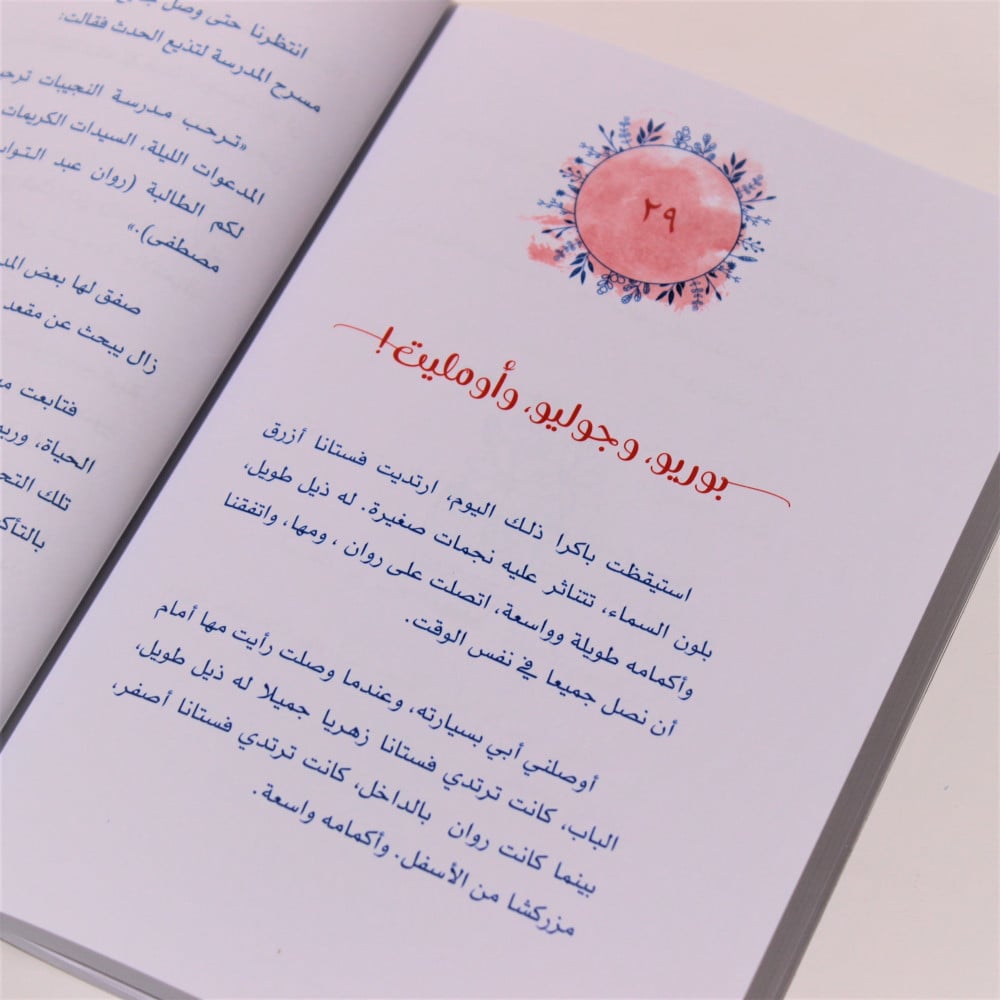 ٢٩
بوريو، وجوليو، وأومليت!
استيقظت باكرا ذلك اليوم، ارتديت فستانا أزرق
بلون السماء، تتناثر عليه نجمات صغيرة. له ذيل طويل،
وأكمامه طويلة وواسعة، اتصلت على روان ، ومها، واتفقنا
أن نصل جميعا في نفس الوقت.
أوصلني أبي بسيارته، وعندما وصلت رأيت مها أمام
الباب، كانت ترتدي فستانا زهريا جميلا له ذيل طويل،
بينما كانت روان بالداخل، كانت ترتدي فستانا أصفر،
مزركشا من الأسفل. وأكمامه واسعة.
انتظرنا حتى وصل
مسرح المدرسة لتذيع الحدث فقالت:
«ترحب مدرسة النجيبات
المدعوات الليلة، السيدات الكريمات
لكم الطالبة (روان عبد التواب
مصطفى).»
صفق لها بعض
زال يبحث عن مقعد
فتابعت
الحياة،
تلك